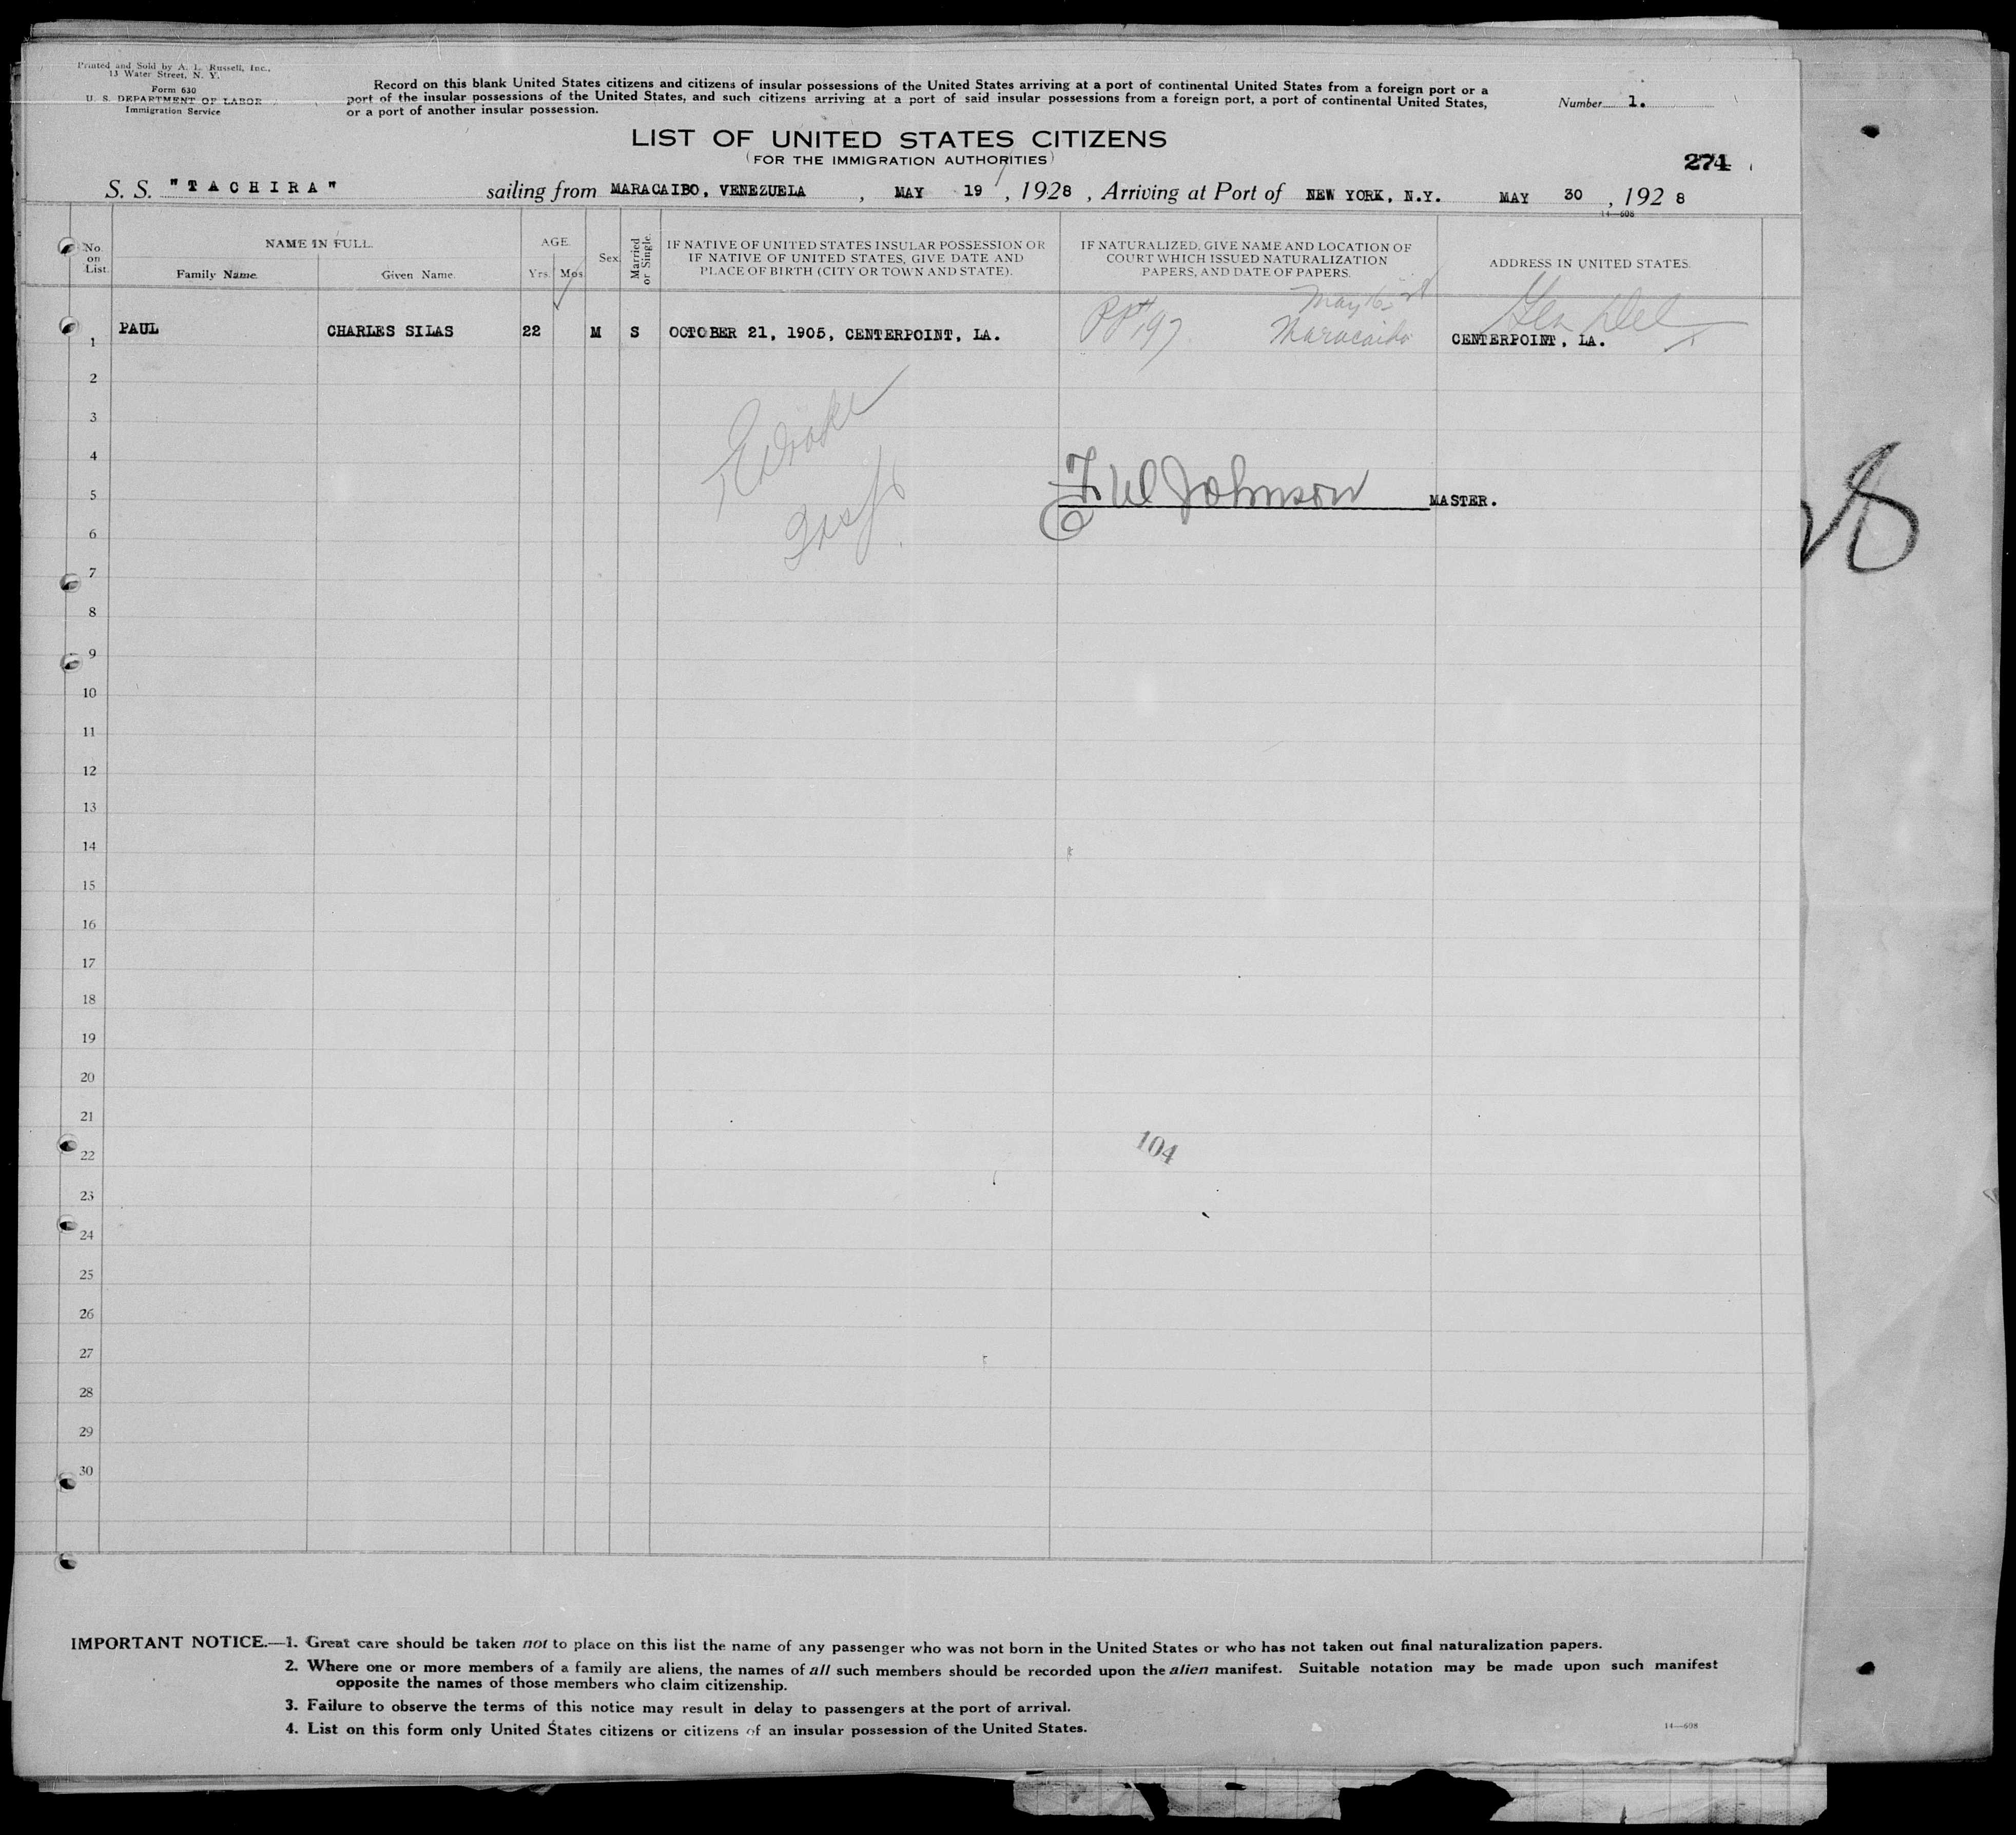 Printed and Sold by A. L. Russell, Inc.,
13 Water Street, N. Y.
Form 630
U. S. DEPARTMENT OF LABOR
Immigration Service
Record on this blank United States citizens and citizens of insular possessions of the United States arriving at a port of continental United States from a foreign port or a
port of the insular possessions of the United States, and such citizens arriving at a port of said insular possessions from a foreign port, a port of continental United States,
or a port of another insular possession.
Number 1.
LIST OF UNITED STATES CITIZENS
(FOR THE IMMIGRATION AUTHORITIES)
274
S. S. "TACHIRA" sailing from MARACAIBO, VENEZUELA, MAY 19, 1928, Arriving at Port of NEW YORK, N.Y. MAY 30, 1928
14—608
No. on List.
NAME IN FULL.
Family Name.
Given Name.
AGE.
Yrs. Mos.
Sex.
Married or Single.
IF NATIVE OF UNITED STATES INSULAR POSSESSION OR
IF NATIVE OF UNITED STATES, GIVE DATE AND
PLACE OF BIRTH (CITY OR TOWN AND STATE).
IF NATURALIZED, GIVE NAME AND LOCATION OF
COURT WHICH ISSUED NATURALIZATION
PAPERS, AND DATE OF PAPERS.
ADDRESS IN UNITED STATES.
1 PAUL CHARLES SILAS 22 M S OCTOBER 21, 1905, CENTERPOINT, LA. PP#197 Maracaibo CENTERPOINT, LA.
Gen Del
2
3
4
5
F W Johnson MASTER.
6
7
8
9
10
11
12
13
14
15
16
17
18
19
20
21
22
104
23
24
25
26
27
28
29
30
IMPORTANT NOTICE.—1. Great care should be taken not to place on this list the name of any passenger who was not born in the United States or who has not taken out final naturalization papers.
2. Where one or more members of a family are aliens, the names of all such members should be recorded upon the alien manifest. Suitable notation may be made upon such manifest
opposite the names of those members who claim citizenship.
3. Failure to observe the terms of this notice may result in delay to passengers at the port of arrival.
4. List on this form only United States citizens or citizens of an insular possession of the United States.
14—608